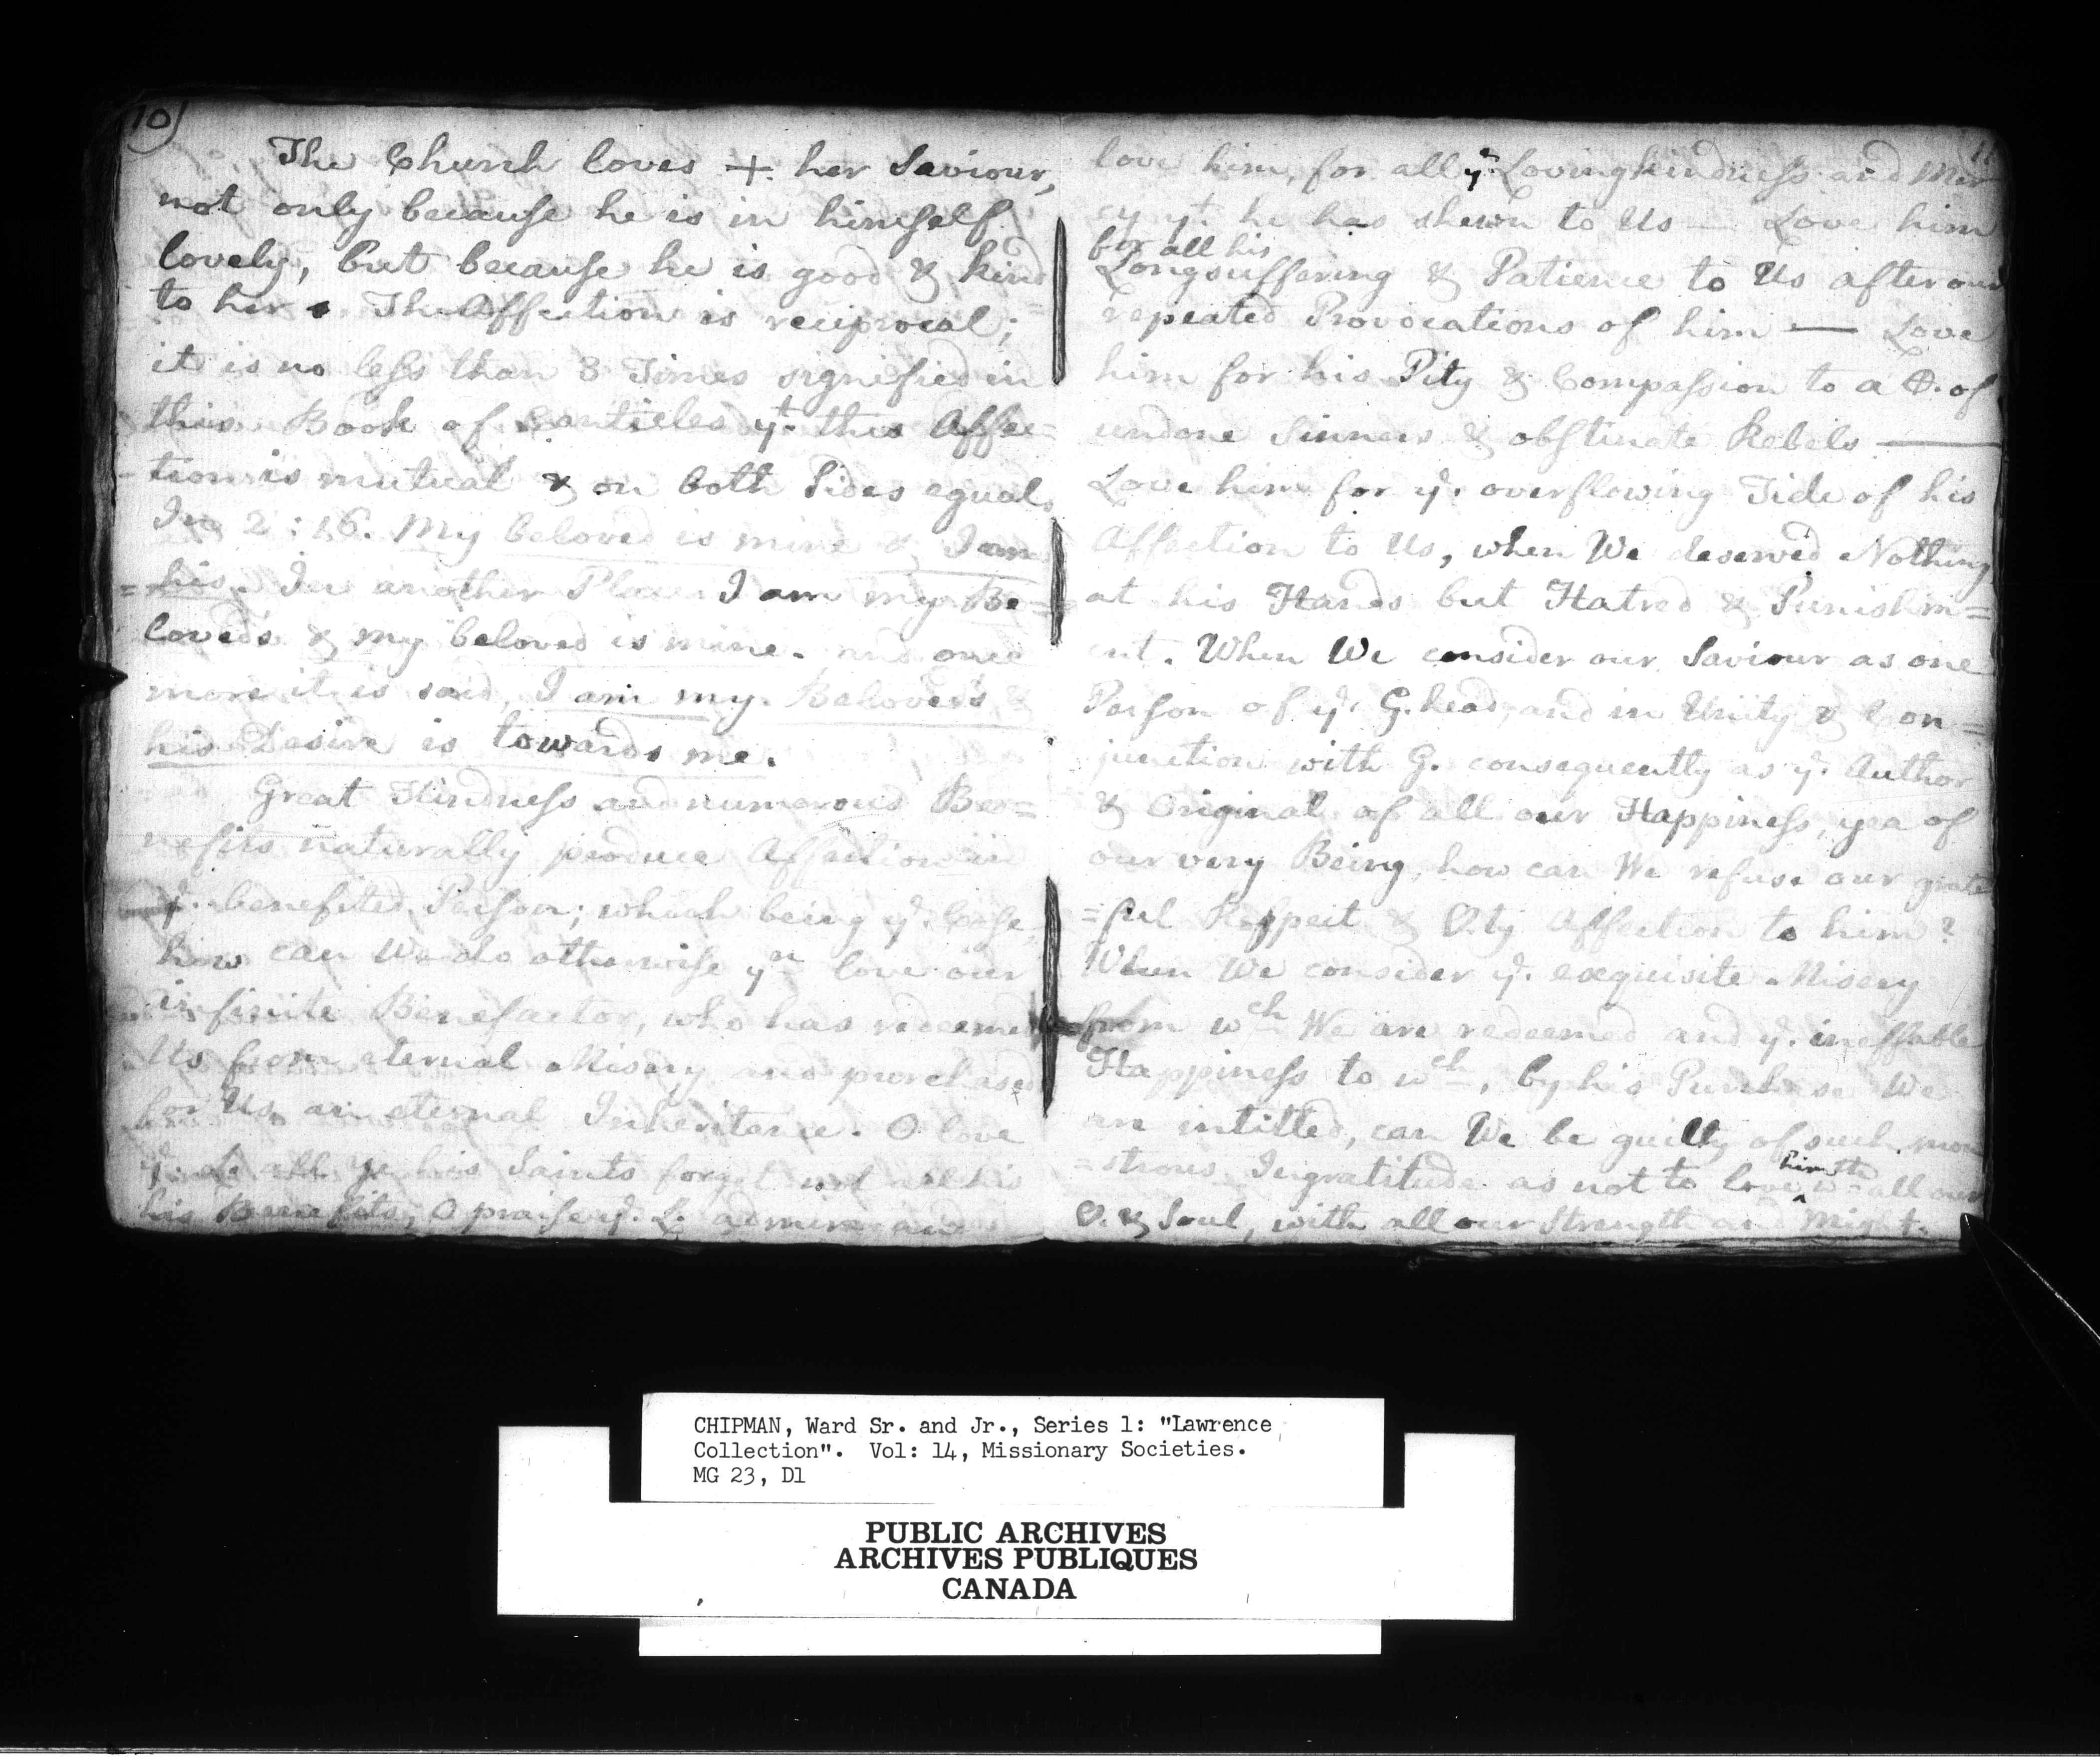 10)
The Church loves + her Saviour,
not only because he is in himself
lovely, but because he is good & kind
to her. The Affection is reciprocal;
it is no less than 3 Times signified in
this Book of Canticles yt. this Affec=
tion is mutual & on both Sides equal.
In 2:16. My beloved is mine & I am
=his. In another Place I am my Be=
loved's & my beloved is mine. and once
more it is said, I am my Beloved's &
his Desire is towards me.
Great Kindness and numerous Ben=
nefits naturally produce Affection in
ye. benefited Person; which being ye. Case,
how can We do otherwise yn love our
infinite Benefactor, who has redeemed
Us from eternal Misery and purchased
for Us an eternal Inheritance. O love
ye. L. all ye his Saints forget not all his
his Benefits, O praise ye. L. admire and
11
love him, for all ye. Lovingkindness and Mer
cy yt. he has shewn to Us — Love him
for all his
Longsuffering & Patience to Us after our
repeated Provocations of him — Love
him for his Pity & Compassion to a of
undone Sinners & obstinate Rebels —
Love him for ye. overflowing Tide of his
Affection to Us, when We deserved Nothing
at his Hands but Hatred & Punishm=
ent. When We consider our Saviour as one
Person of ye. G.head, and in Unity & Con=
junction with G. consequently as ye. Author
& Original of all our Happiness, yea of
our very Being, how can We refuse our grate
=ful Respect & ♡.ty Affection to him?
When We consider ye. exquisite Misery
from wch We are redeemed and ye. ineffable
Happiness to wch, by his Purchase We
are intitled, can We be guilty of such mon
=strous Ingratitude as not to love him wth all our
♡. & Soul, with all our Strength and Might.
CHIPMAN, Ward Sr. and Jr., Series 1: "Lawrence
Collection". Vol: 14, Missionary Societies.
MG 23, D1
PUBLIC ARCHIVES
ARCHIVES PUBLIQUES
CANADA